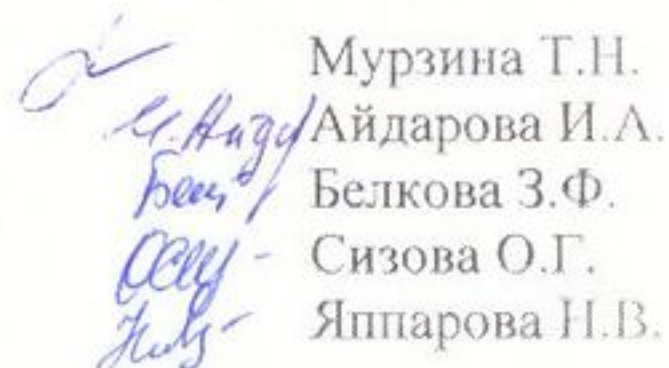 Мурзина Т.Н.
Айдарова И.А.
Белкова З.Ф.
Сизова О.Г.
Яппарова Н.В.